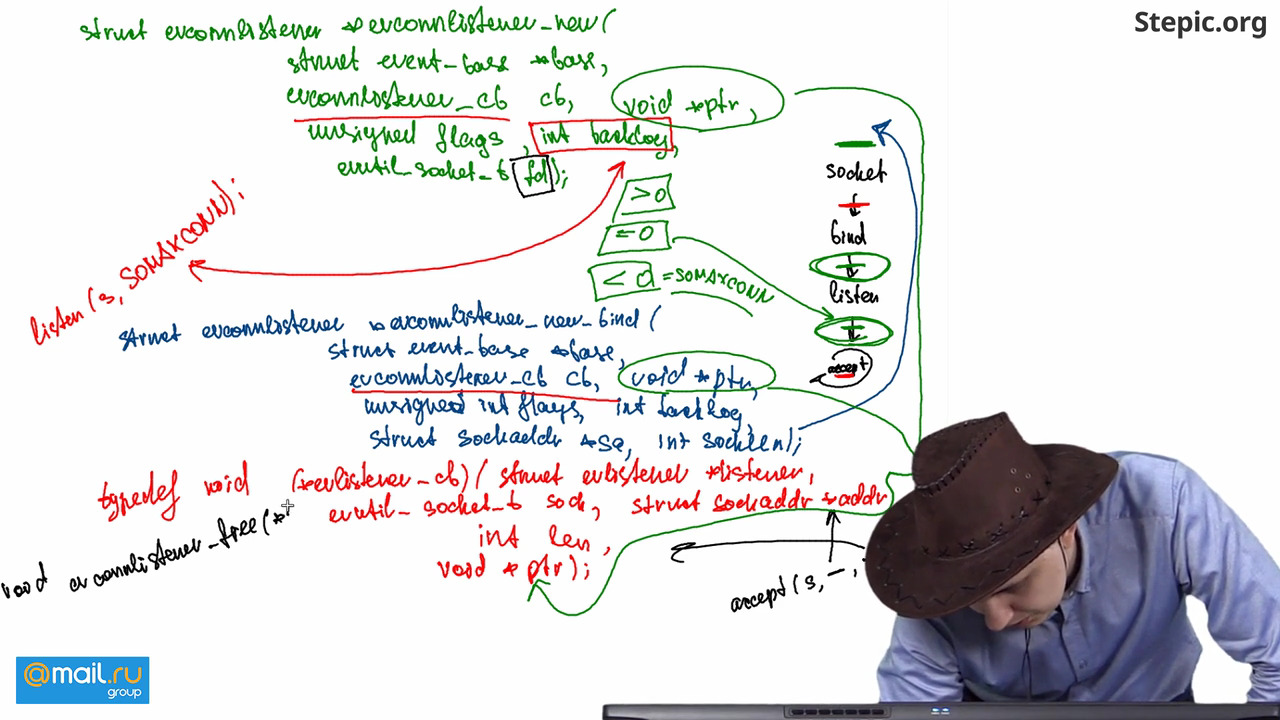 Stepic.org
struct evconnlistener *evconnlistener_new(
struct event_base *base,
evconnlistener_cb cb, void *ptr,
unsigned flags, int backlog,
evutil_socket_t fd);
> 0
= 0
< 0 = SOMAXCONN
listen(s, SOMAXCONN);
socket
bind
listen
accept
struct evconnlistener *evconnlistener_new_bind(
struct event_base *base,
evconnlistener_cb cb, void *ptr,
unsigned int flags, int backlog,
struct sockaddr *sa, int socklen);
typedef void (*evlistener_cb)(struct evlistener *listener,
evutil_socket_t sock, struct sockaddr *addr
int len,
void *ptr);
void evconnlistener_free(*
accept(s, –,
@mail.ru
group